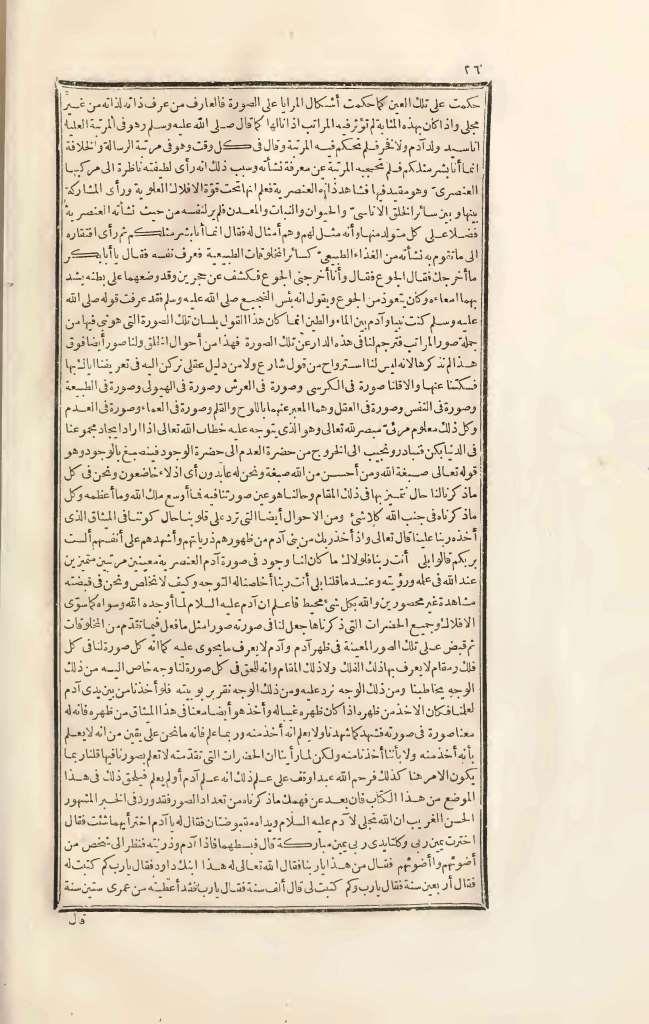 ٢٦
حكمت على تلك العين كما حكمت أشكال المرايا على الصورة فالعارف من عرف ذاته لذاته من غير
مجلى واذا كان بهذه المثابة لم تؤثر فيه المراتب اذا نالها كما قال صلى الله عليه وسلم وهو فى المرتبة العلية
أنا سيد ولد آدم ولا فخر فلم تحكم فيه المرتبة وقال فى كل وقت وهو فى مرتبة الرسالة والخلافة
انما أنا بشر مثلكم فلم تحجبه المرتبة عن معرفة نشأته وسبب ذلك انه رأى لطيفته ناظرة الى مركبها
العنصرى وهو مقيد فيها فشاهد ذاته العنصرية فعلم انها تحت قوة الافلاك العلوية ورأى المشاركة
بينها وبين سائر الخلق الاناسى والحيوان والنبات والمعدن فلم ير لنفسه من حيث نشأته العنصرية
فضلا على كل متولد منها وأنه مثل لهم وهم أمثال له فقال انما أنا بشر مثلكم ثم رأى افتقاره
الى ما تقوم به نشأته من الغذاء الطبيعى كسائر المخلوقات الطبيعية فعرف نفسه فقال يا أبا بكر
ما أخرجك فقال الجوع فقال وأنا أخرجنى الجوع فكشف عن حجرين وقد وضعهما على بطنه يشد
بهما امعاءه وكان يتعوذ من الجوع ويقول انه بئس الضجيع صلى الله عليه وسلم فقد عرفت قوله صلى الله
عليه وسلم كنت نبيا وآدم بين الماء والطين انما كان هذا القول بلسان تلك الصورة التى هو نبى فيها من
جملة صور المراتب فترجم لنا فى هذه الدار عن تلك الصورة فهذا من أحوال الخلق ولنا صور أيضا فوق
هذا لم نذكرها لانه ليس لنا استرواح من قول شارع ولا من دليل عقلى نركن اليه فى تعريفنا اياك بها
فسكتنا عنها والا فلنا صورة فى الكرسى وصورة فى العرش وصورة فى الهيولى وصورة فى الطبيعة
وصورة فى النفس وصورة فى العقل وهما المعبر عنهما باللوح والقلم وصورة فى العماء وصورة فى العدم
وكل ذلك معلوم مرئى مبصر لله تعالى وهو الذى يتوجه عليه خطاب الله تعالى اذا اراد ايجاد مجموعنا
فى الدنيا بكن فنبادر ونجيب الى الخروج من حضرة العدم الى حضرة الوجود فينصبغ بالوجود وهو
قوله تعالى صبغة الله ومن أحسن من الله صبغة ونحن له عابدون أى اذلاء خاضعون ونحن فى كل
ما ذكرنا لنا حال نتميز بها فى ذلك المقام وحالنا هو عين صورتنا فيه فما أوسع ملك الله وما أعظمه وكل
ما ذكرناه فى جنب الله كلا شئ ومن الاحوال أيضا التى ترد على قلوبنا حال كوننا فى الميثاق الذى
أخذه ربنا علينا قال تعالى واذ أخذ ربك من بنى آدم من ظهورهم ذرياتهم وأشهدهم على أنفسهم ألست
بربكم قالوا بلى أنت ربنا فلولا ما كان لنا وجود فى صورة آدم العنصرية معينين مرتبين متميزين
عند الله فى علمه ورؤيته وعندنا ما قلنا بلى أنت ربنا أخلصنا له التوجه وكيف لا نخلص ونحن فى قبضته
مشاهدة غير محصورين والله بكل شئ محيط فاعلم ان آدم عليه السلام لما أوجده الله وسواه كما سوى
الافلاك وجميع الحضرات التى ذكرناها جعل لنا فى صورته صورا مثل ما فعل فيما تقدم من المخلوقات
ثم قبض على تلك الصور المعينة فى ظهر آدم وآدم لا يعرف ما يحوى عليه كما انه كل صورة لنا فى كل
فلك ومقام لا يعرف بها ذلك الفلك ولا ذلك المقام وانه للحق فى كل صورة لنا وجه خاص اليه من ذلك
الوجه يخاطبنا ومن ذلك الوجه نرد عليه ومن ذلك الوجه نقر بربوبيته فلو أخذنا من بين يدى آدم
لعلمنا فكان الاخذ من ظهره اذ كان ظهره غيبا له وأخذ هو أيضا معنا فى هذا الميثاق من ظهره فانه له
معنا صورة فى صورته فشهد كما شهدنا ولا يعلم انه أخذ منه وربما علم فانه ما نحن على يقين من انه لا يعلم
بأنه أخذ منه ولا بأننا أخذنا منه ولكن لما رأينا ان الحضرات التى تقدمته لا تعلم بصورنا فيها قلنا ربما
يكون الامر هنا كذلك فرحم الله عبدا وقف على علم ذلك انه علم آدم أو لم يعلم فيلحق ذلك فى هذا
الموضع من هذا الكتاب فان بعد عن فهمك ما ذكرناه من تعداد الصور فقد ورد فى الخبر المشهور
الحسن الغريب ان الله تجلى لآدم عليه السلام ويداه مقبوضتان فقال له يا آدم اختر أيهما شئت فقال
اخترت يمين ربى وكلتا يدى ربى يمين مباركة قال فبسطهما فاذا آدم وذريته فنظر الى شخص من
أضوئهم وأضوئهم فقال من هذا يا رب فقال الله تعالى له هذا ابنك داود فقال يا رب كم كتبت له
فقال أربعين سنة فقال يا رب وكم كتبت لى قال ألف سنة فقال يا رب فقد أعطيته من عمرى ستين سنة
قال